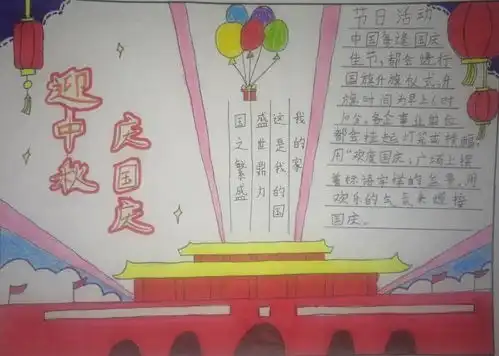 迎中秋
庆国庆
我的家
这是我的国
盛世鼎力
国之繁盛
节日活动
中国每逢国庆
佳节，都会进行
国旗升旗仪式，升
旗时间为早上6时
10分，各企事业单位
都会挂起灯笼或横幅，
用“欢度国庆，广场上摆
着标语字样的盆景，用
欢乐的来迎接
国庆。